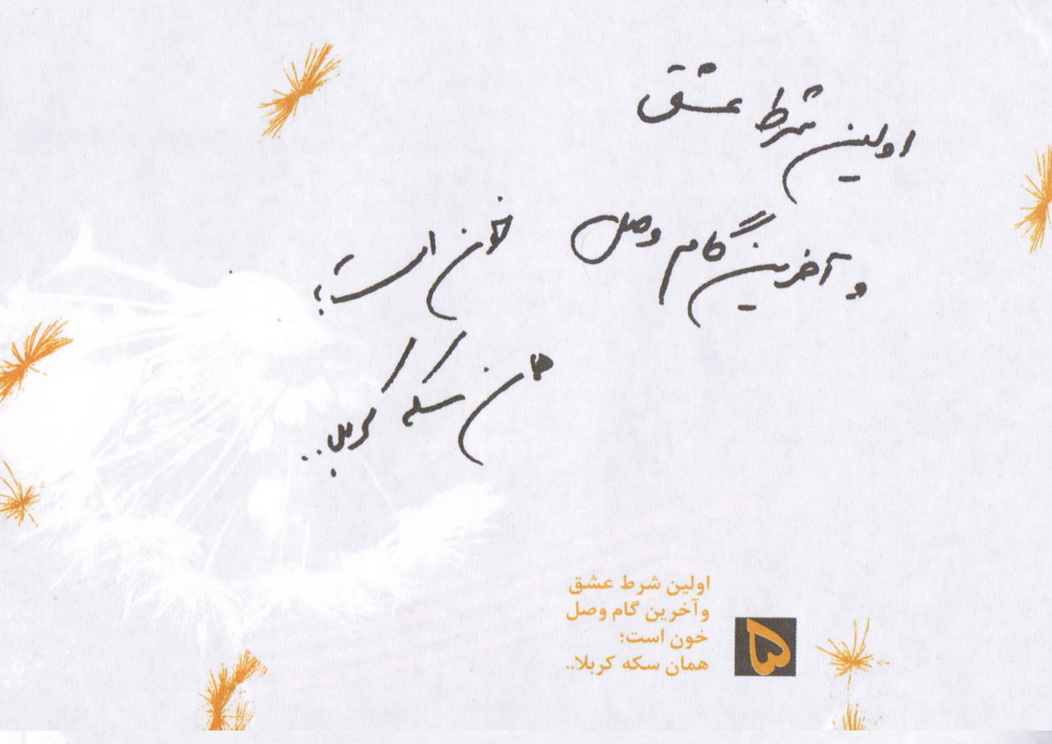 اولین شرط عشق
و آخرین گام وصل
خون است؛
همان سکه کربلا..
اولین شرط عشق
وآخرین گام وصل
خون است؛
همان سکه کربلا..
۵